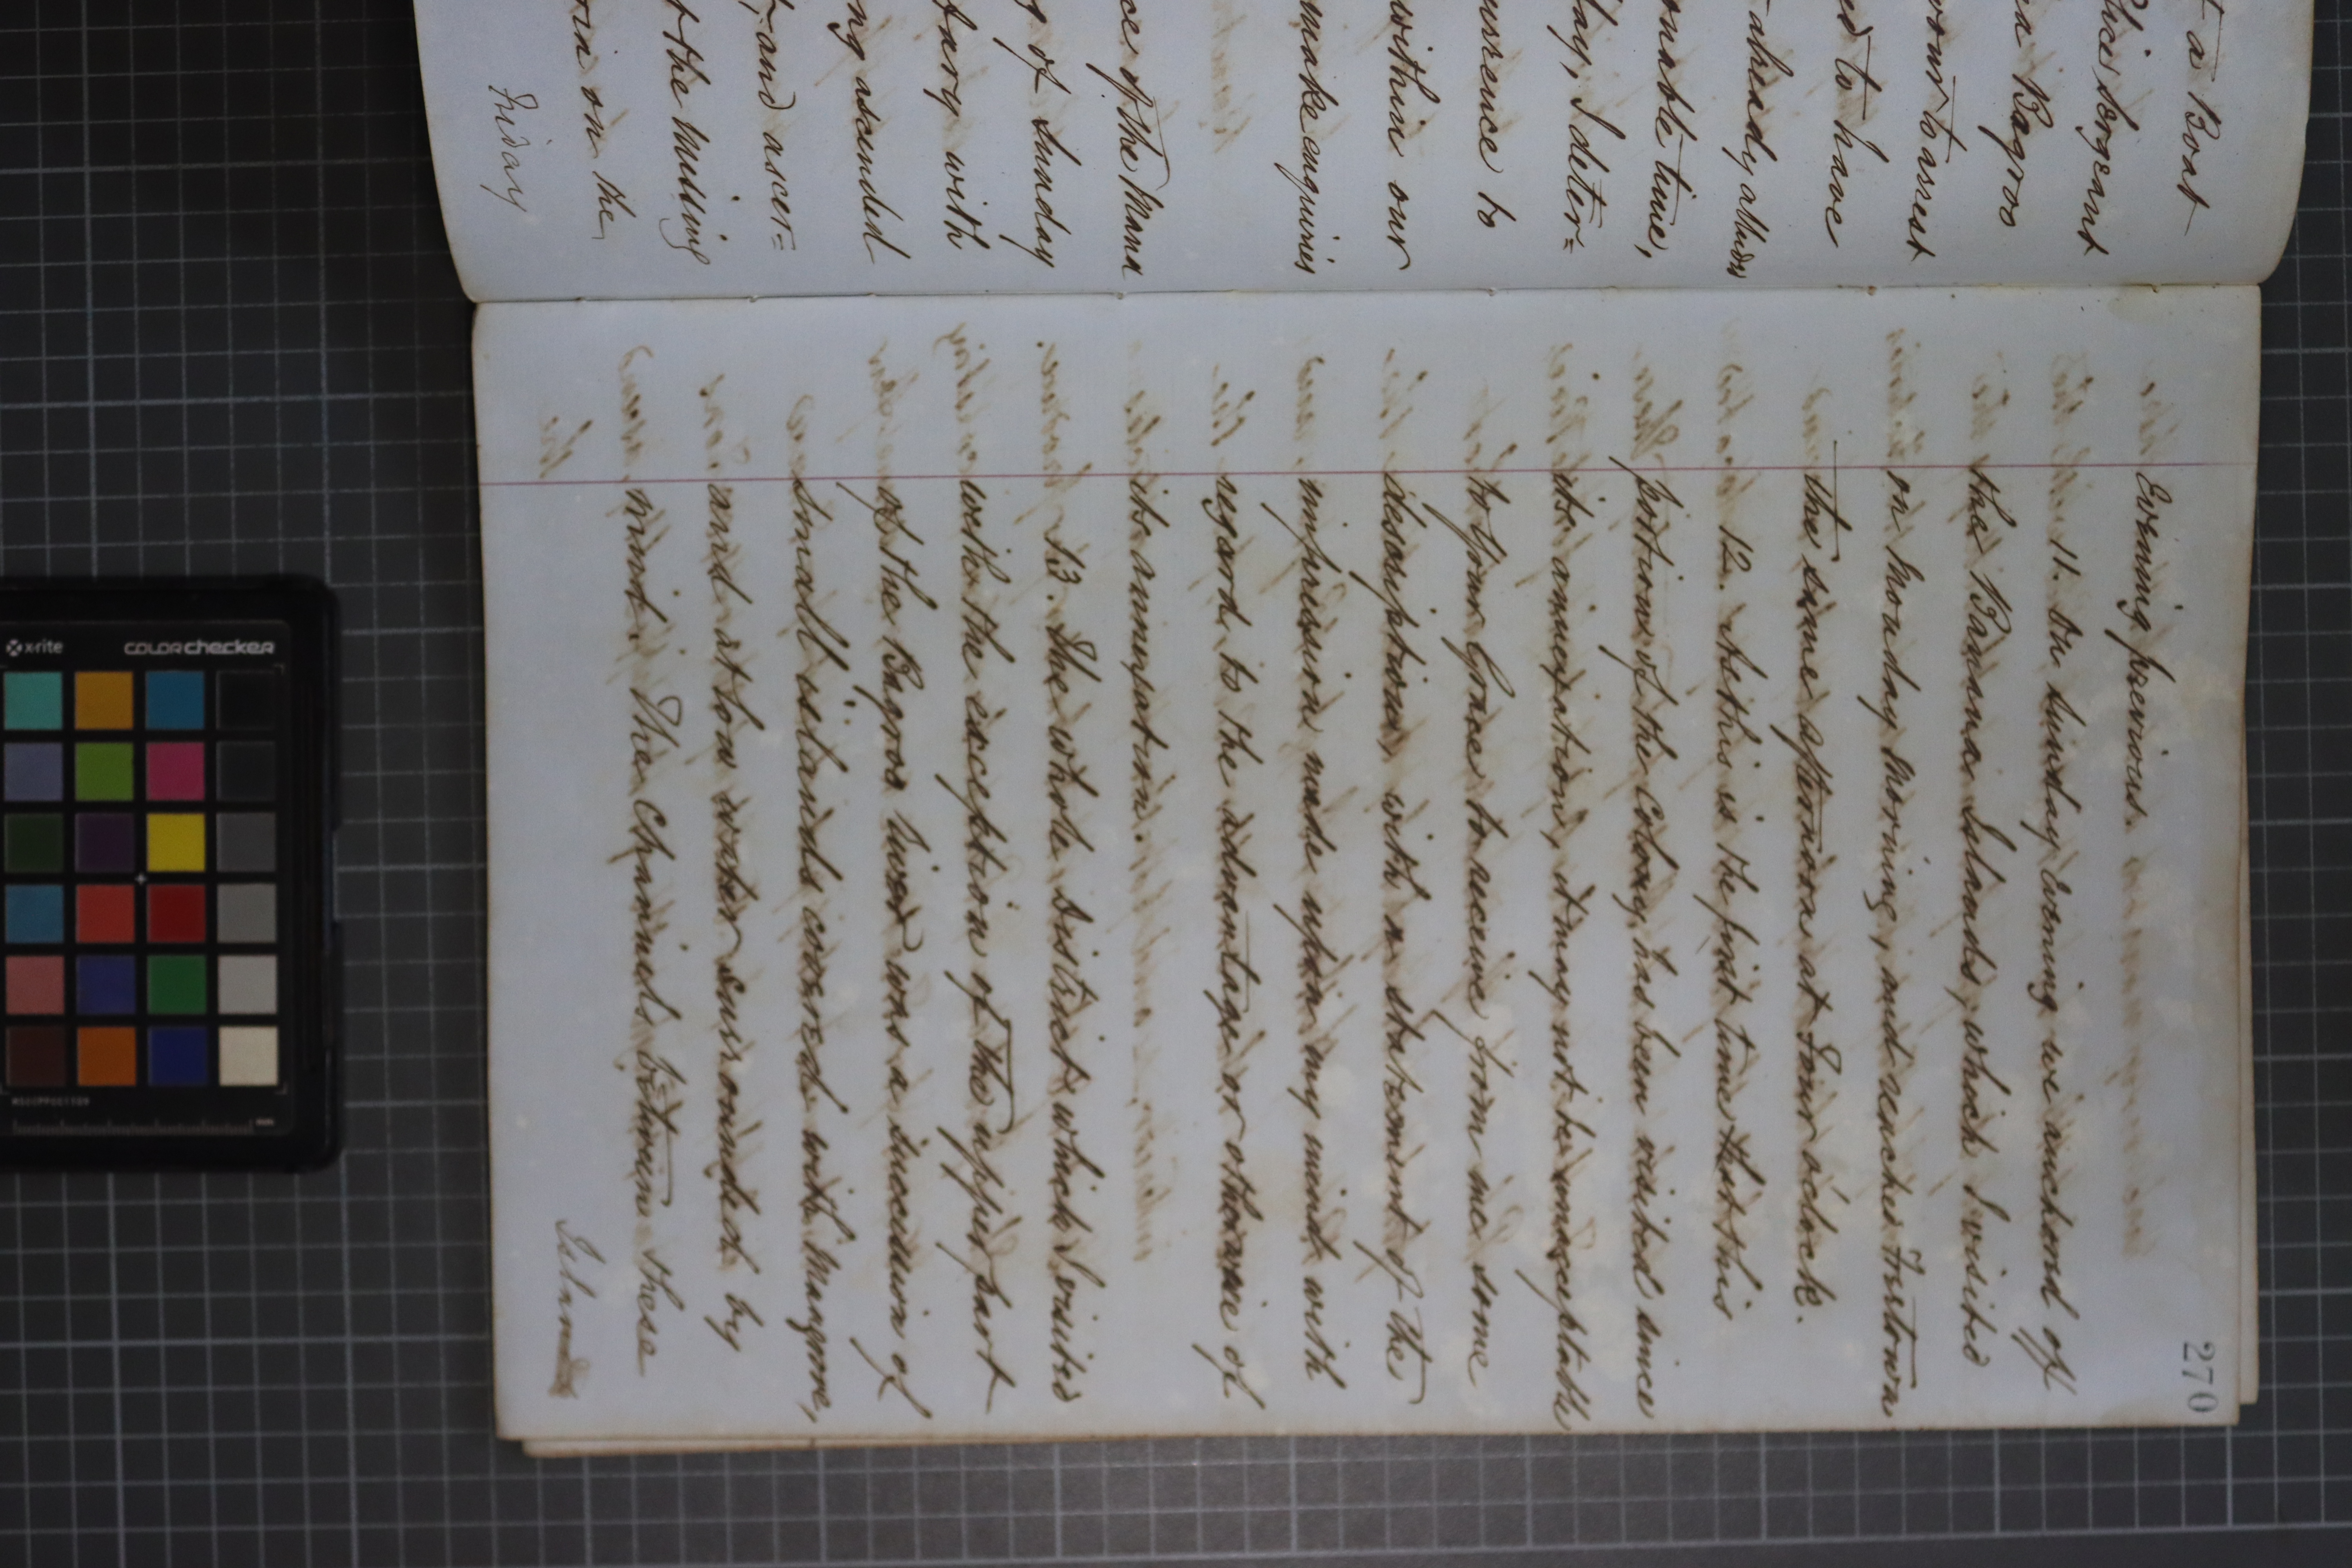 t a Boat
olice Sergeant
en Bagroo
vour to arrest
ed to have
already allude
onable time,
day, I deter=
urrence to
within our
make enquiries
ce of the Mana
g of Sunday
tary with
ng ascended
t, and ascer=
t the missing
on the
Friday
270
Evening previous.
11. On Sunday Evening we anchored off
the Banana Islands, which I visited
on Monday Morning, and reached Freetown
the same afternoon at Four o'clock.
12. As this is the first time that this
portion of the Colony, has been visited since
its annexation, it may not be unacceptable
to Your Grace to receive from me some
description, with a statement of the
impression made upon my mind with
regard to the advantage or otherwise of
its annexation.
13. The whole district which I visited
with the exception of the upper part
of the Bagroo River was a succession of
Small islands covered with Mangrove,
and at low water surrounded by
mud. The Channels between these
Islands